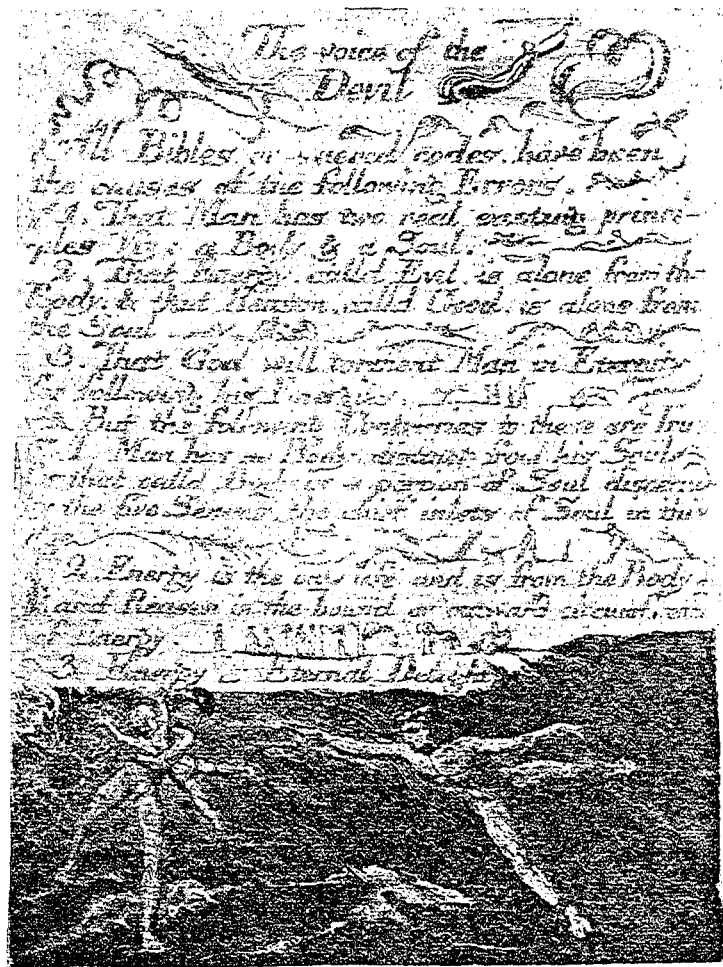 The voice of the
Devil
All Bibles or sacred codes. have been
the causes of the following Errors.
1. That Man has two real existing princi-
ples Viz: a Body & a Soul.
2. That Energy. calld Evil. is alone from the
Body. & that Reason. calld Good. is alone from
the Soul
3. That God will torment Man in Eternity
for following his Energies.
But the following Contraries to these are True
1 Man has no Body distinct from his Soul
for that calld Body is a portion of Soul discernd
by the five Senses. the chief inlets of Soul in this
age
2. Energy is the only life and is from the Body
and Reason is the bound or outward circumference
of Energy.
3 Energy is Eternal Delight